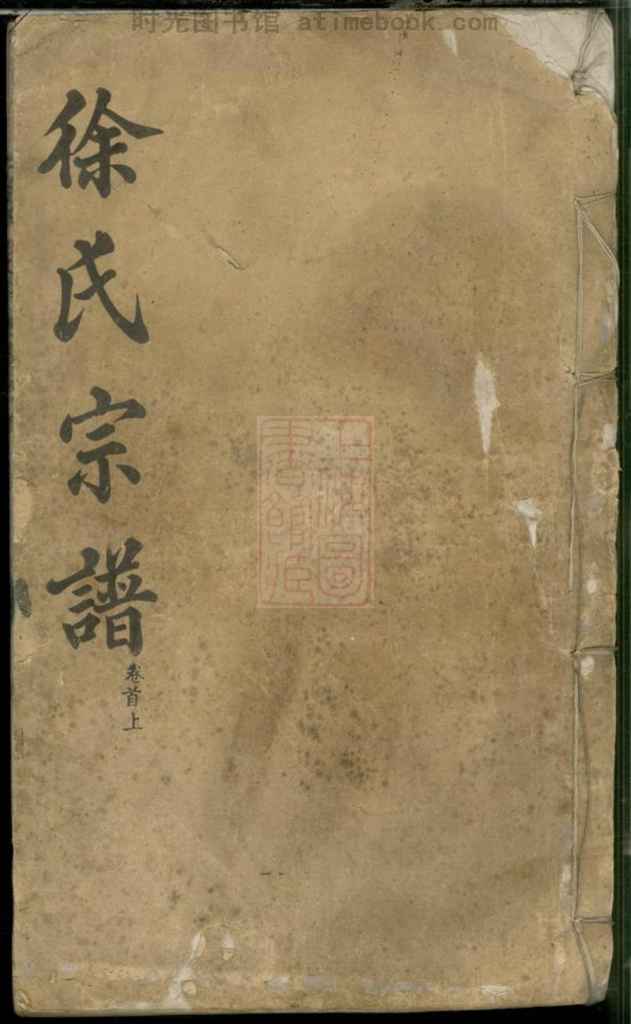 时光图书馆 atimebook.com
徐氏宗譜
卷首上
上海圖書館藏